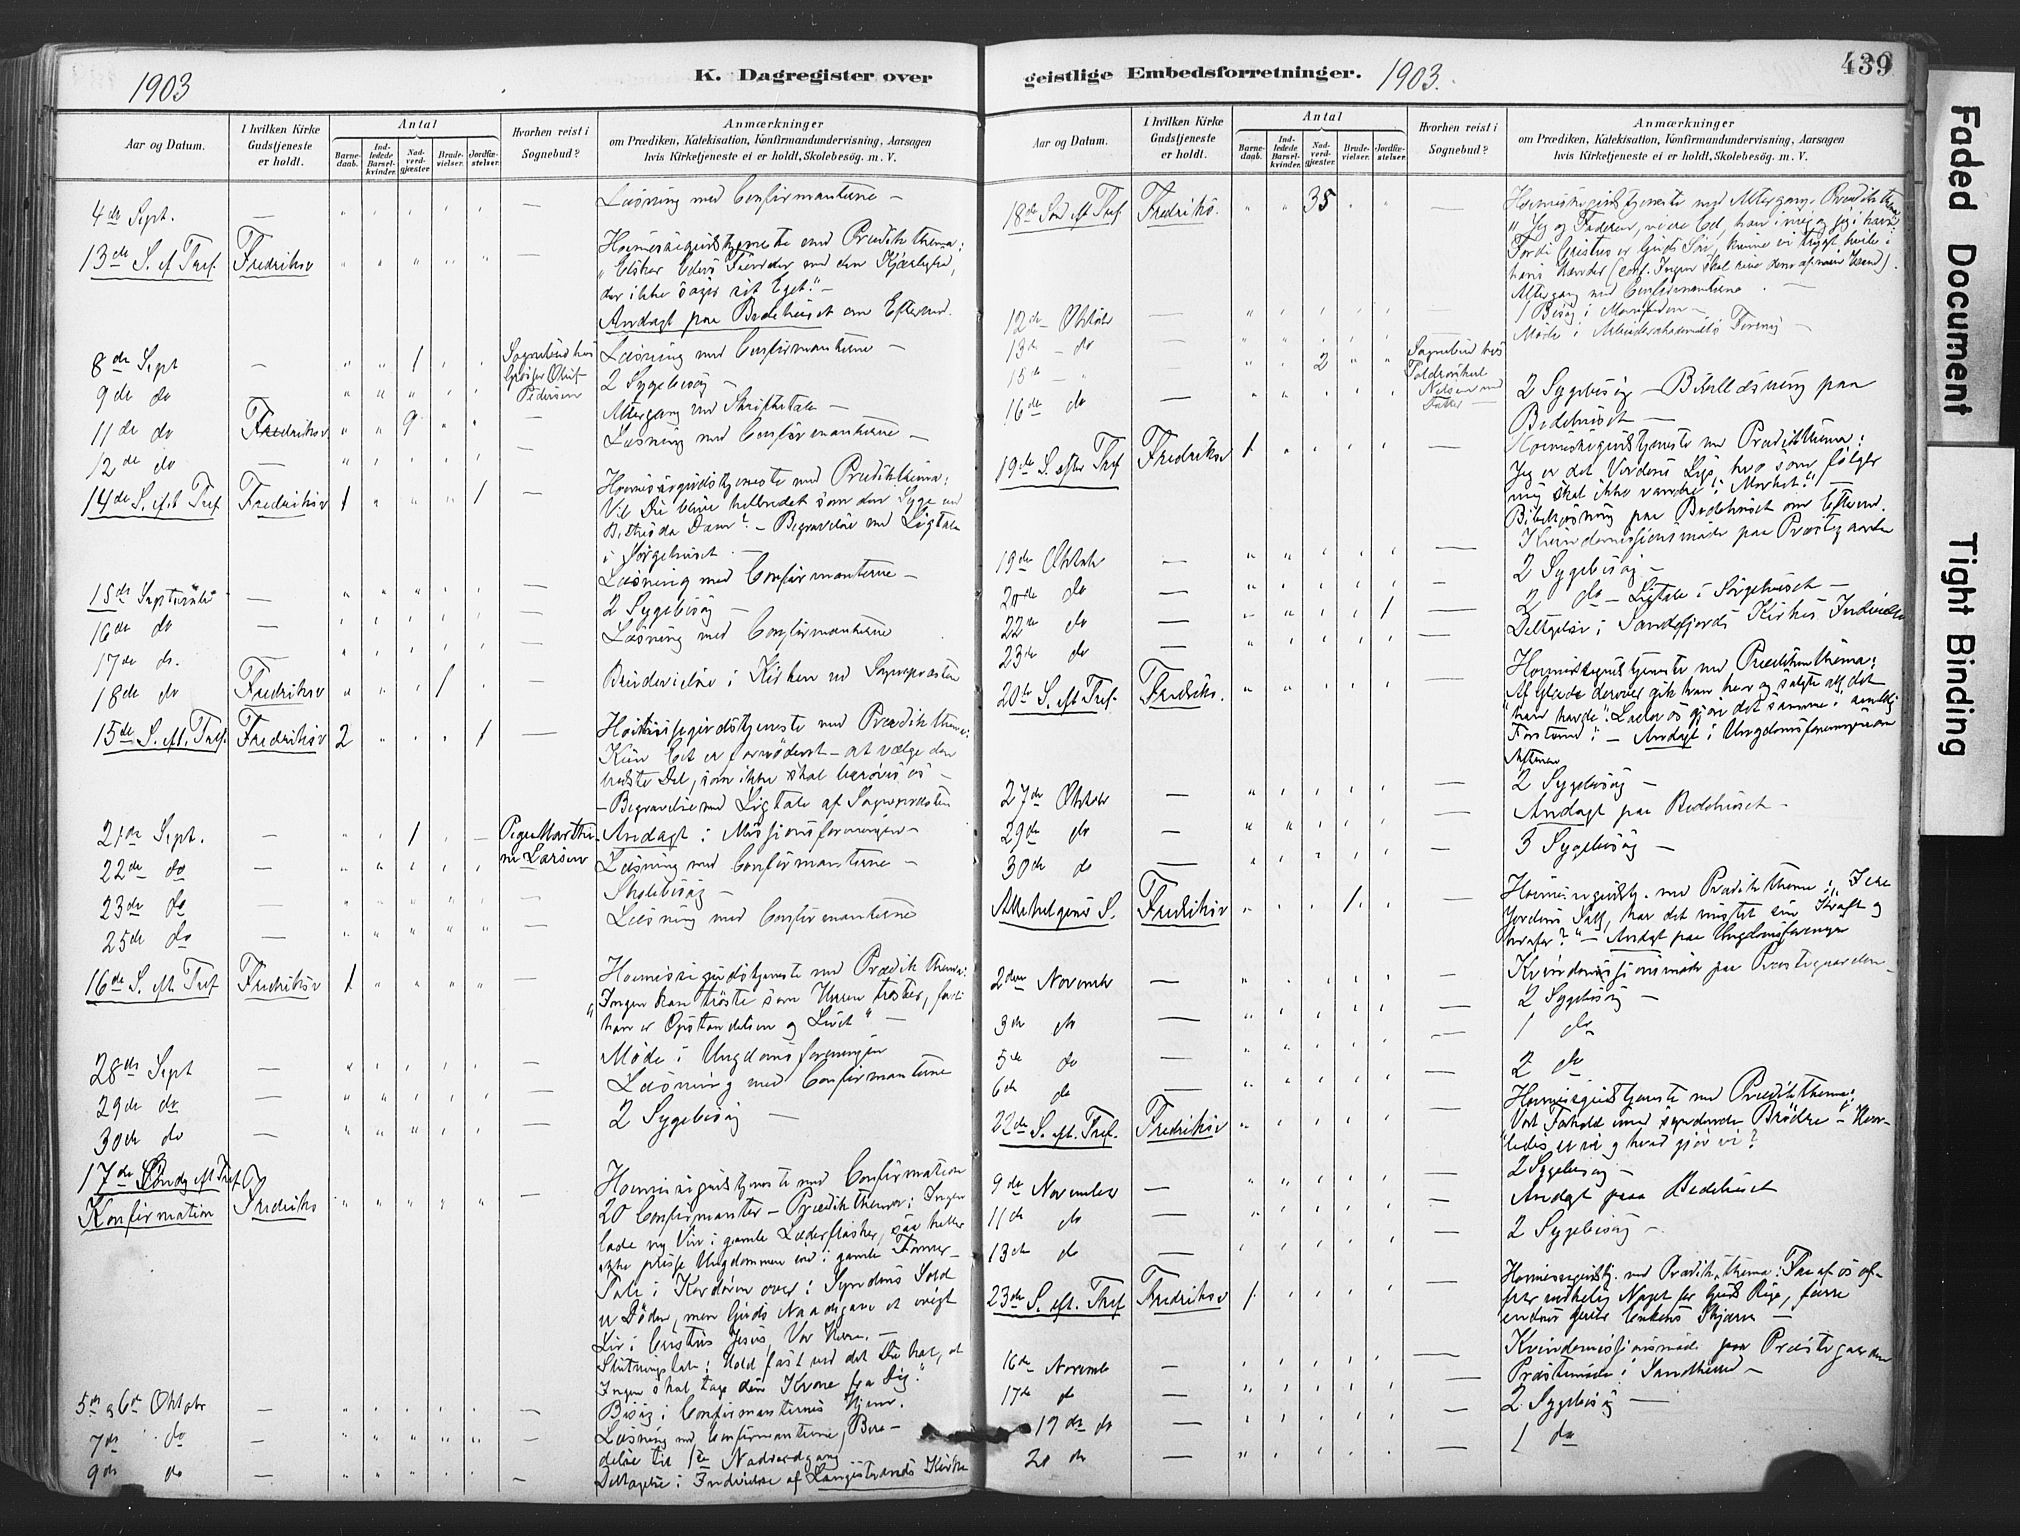 1903
K. Dagregister over
Aar og Datum.
I hvilken Kirke Gudstjeneste er holdt.
Antal
Barne-daab.
Ind-ledede Barsel-kvinder.
Nad-verd-gjæster.
Brude-vielser.
Jordfæ-stelser.
Hvorhen reist i Sognebud?
Anmærkninger
om Prædiken, Katekisation, Konfirmandundervisning, Aarsagen
hvis Kirketjeneste ei er holdt, Skolebesøg. m. V.
4de Sept. — Læsning med Confirmanterne —
13de S. ef Tref. Fredriksv Høimessegudstjeneste med Prædikthema:
"Elsker Eders Fiender med den Kjærlighed,
der ikke søger sit Eget." —
Andagt paa Bedehuset om Efterm.
8de Sept — 1 Sognebud hos Læsning med Confirmanterne —
9de do Pedersen 2 Sygebesøg —
11de do Fredriksv 9 — Altergang med Skriftetale —
12de do — Læsning med Confirmanterne —
14de S. eft Tref Fredriksv 1 1 Høimessegudstjeneste med Prædikthema:
Vil Du blive helbredet som den Syge ved
Bethesda Dam? — Begravelse med Ligtale
i Sørgehuset —
15de September — Læsning med Confirmanterne —
16de do — 2 Sygebesøg —
17de do. Læsning med Confirmanterne
18de do Fredriksv 1 Brudevielse i Kirken ved Sognepræsten
15de S. eft. Tref. Fredriksv 2 1 Høimessegudstjeneste med Prædikthema:
Kun Eet er fornødent — at vælge den
bedste Del, som ikke skal berøves os —
— Begravelse med Ligtale af Sognepræsten
21de Sept. — 1 Pige Marthi- Andagt i Missionsforeningen —
22de do — ne Larsen Læsning med Confirmanterne —
23de do — Skolebesøg —
25de do — Læsning med Confirmanterne
16de S. eft Tref Fredriksv 1 Høimessegudstjeneste med Prædikthema:
"Ingen kan trøste som Herren trøster, fordi
han er Opstandelsen og Livet" —
28de Sept — Møde i Ungdomsforeningen
29de do — Læsning med Confirmanterne
30de do — 2 Sygebesøg —
17de Søndg eft Tref
Konfirmation Fredriks — Høimessegudstjeneste med Confirmation
20 Confirmanter — Prædikthema: Ingen
lade ny Vin i gamle Læderflasker, saa heller
ikke presse Ungdommen ind i gamle Former —
Tale i Kordøren over: Syndens Sold
er Døden, men Guds Naadegave et evigt
Liv i Cristus Jesus, Vor Herre. —
Slutningstale: Hold fast ved det Du har, at
Ingen skal tage din Krone fra Dig."
5te og 6te Oktobr — Besøg i Confirmanternes Hjem.
7de do — Læsning med Confirmanterne, Bere-
delse til 1ste Nadverdgang
9de do — Deltagelse i Indvielse af Langestrands Kirke
geistlige Embedsforretninger.
1903.
439
Aar og Datum.
I hvilken Kirke Gudstjeneste er holdt.
Antal
Barne-daab.
Ind-ledede Barsel-kvinder.
Nad-verd-gjæster.
Brude-vielser.
Jordfæ-stelser.
Hvorhen reist i Sognebud?
Anmærkninger
om Prædiken, Katekisation, Konfirmandundervisning, Aarsagen
hvis Kirketjeneste ei er holdt, Skolebesøg. m. V.
18de Snd eft Tref. Fredriks. 35 Høimessegudstjeneste med Altergang. Prædikthema
"Jeg og Faderen, vi ere Eet, han i mig og jeg i ham"
Fordi Cristus er Guds Søn, kunne vi trygt hvile i
hans Hænder (conf. Ingen skal rive dem af min Haand).
Altergang med Confirmanterne —
12te Oktobr — Besøg i
13de — do Møde i Forening —
15de — 2 Sognebud hos
16de do — 2 Sygebesøg — Bibellæsning paa
Bedehuset —
19de S. efter Tref Fredriksv 1 — Høimessegudstjeneste med Prædikthema:
Jeg er det Verdens Lys, hvo som følger
mig skal ikke vandre i Mørket." —
Bibellæsning paa Bedehuset om Efterm.
19de Oktobr — Kvindemissionsmøde paa Prestegaarden
20de do 2 Sygebesøg —
22de do 1 2 do — Ligtale i Sørgehuset —
23de do Deltagelse i Sandefjords Kirkes Indvielse
20de S. eft Tref. Fredriks. — Høimessegudstjeneste med Prædikenthema:
"Af Glæde derover gik han hen og solgte alt det
han havde". Lader os gjøre det samme i aandelig
Forstand! — Andagt i Ungdomsforeningen om
Aftenen
27de Oktobr — 2 Sygebesøg —
29de do — Andagt paa Bedehuset —
30de do — 3 Sygebesøg —
Allehelgens S. Fredriksv 1 Høimessegudstj. med Prædikthema: "I ere
Jordens Salt, har det mistet sin Kraft og
hvorfor?" — Andagt paa Ungdomsforeningen
2den November — Kvindemissionsmøde paa Præstegaarden —
3de do — 2 Sygebesøg —
5te do — 1 do
6te do — 2 do
22de S. eft. Tref. Fredriksv — Høimessegudstjeneste med Prædikthema:
Vort Forhold imod syndende Brødre — Hvor-
ledes er vi og hvad gjør vi?
9de November — 2 Sygebesøg —
11te do — Andagt paa Bedehuset
13de do — 2 Sygebesøg —
23de S. eft. Tref Fredriksv 1 Høimessegudstj. med Prædikthema: Faa af os of-
frer virkelig Noget for Guds Rige, færre
endnu giver Enkens Skjærv —
16de Novemb — Kvindemissionsmøde paa Præstegaarden
17de do — Præstemøde i Sandherred —
19de do — 2 Sygebesøg —
20 do — 1 do
Faded Document
Tight Binding